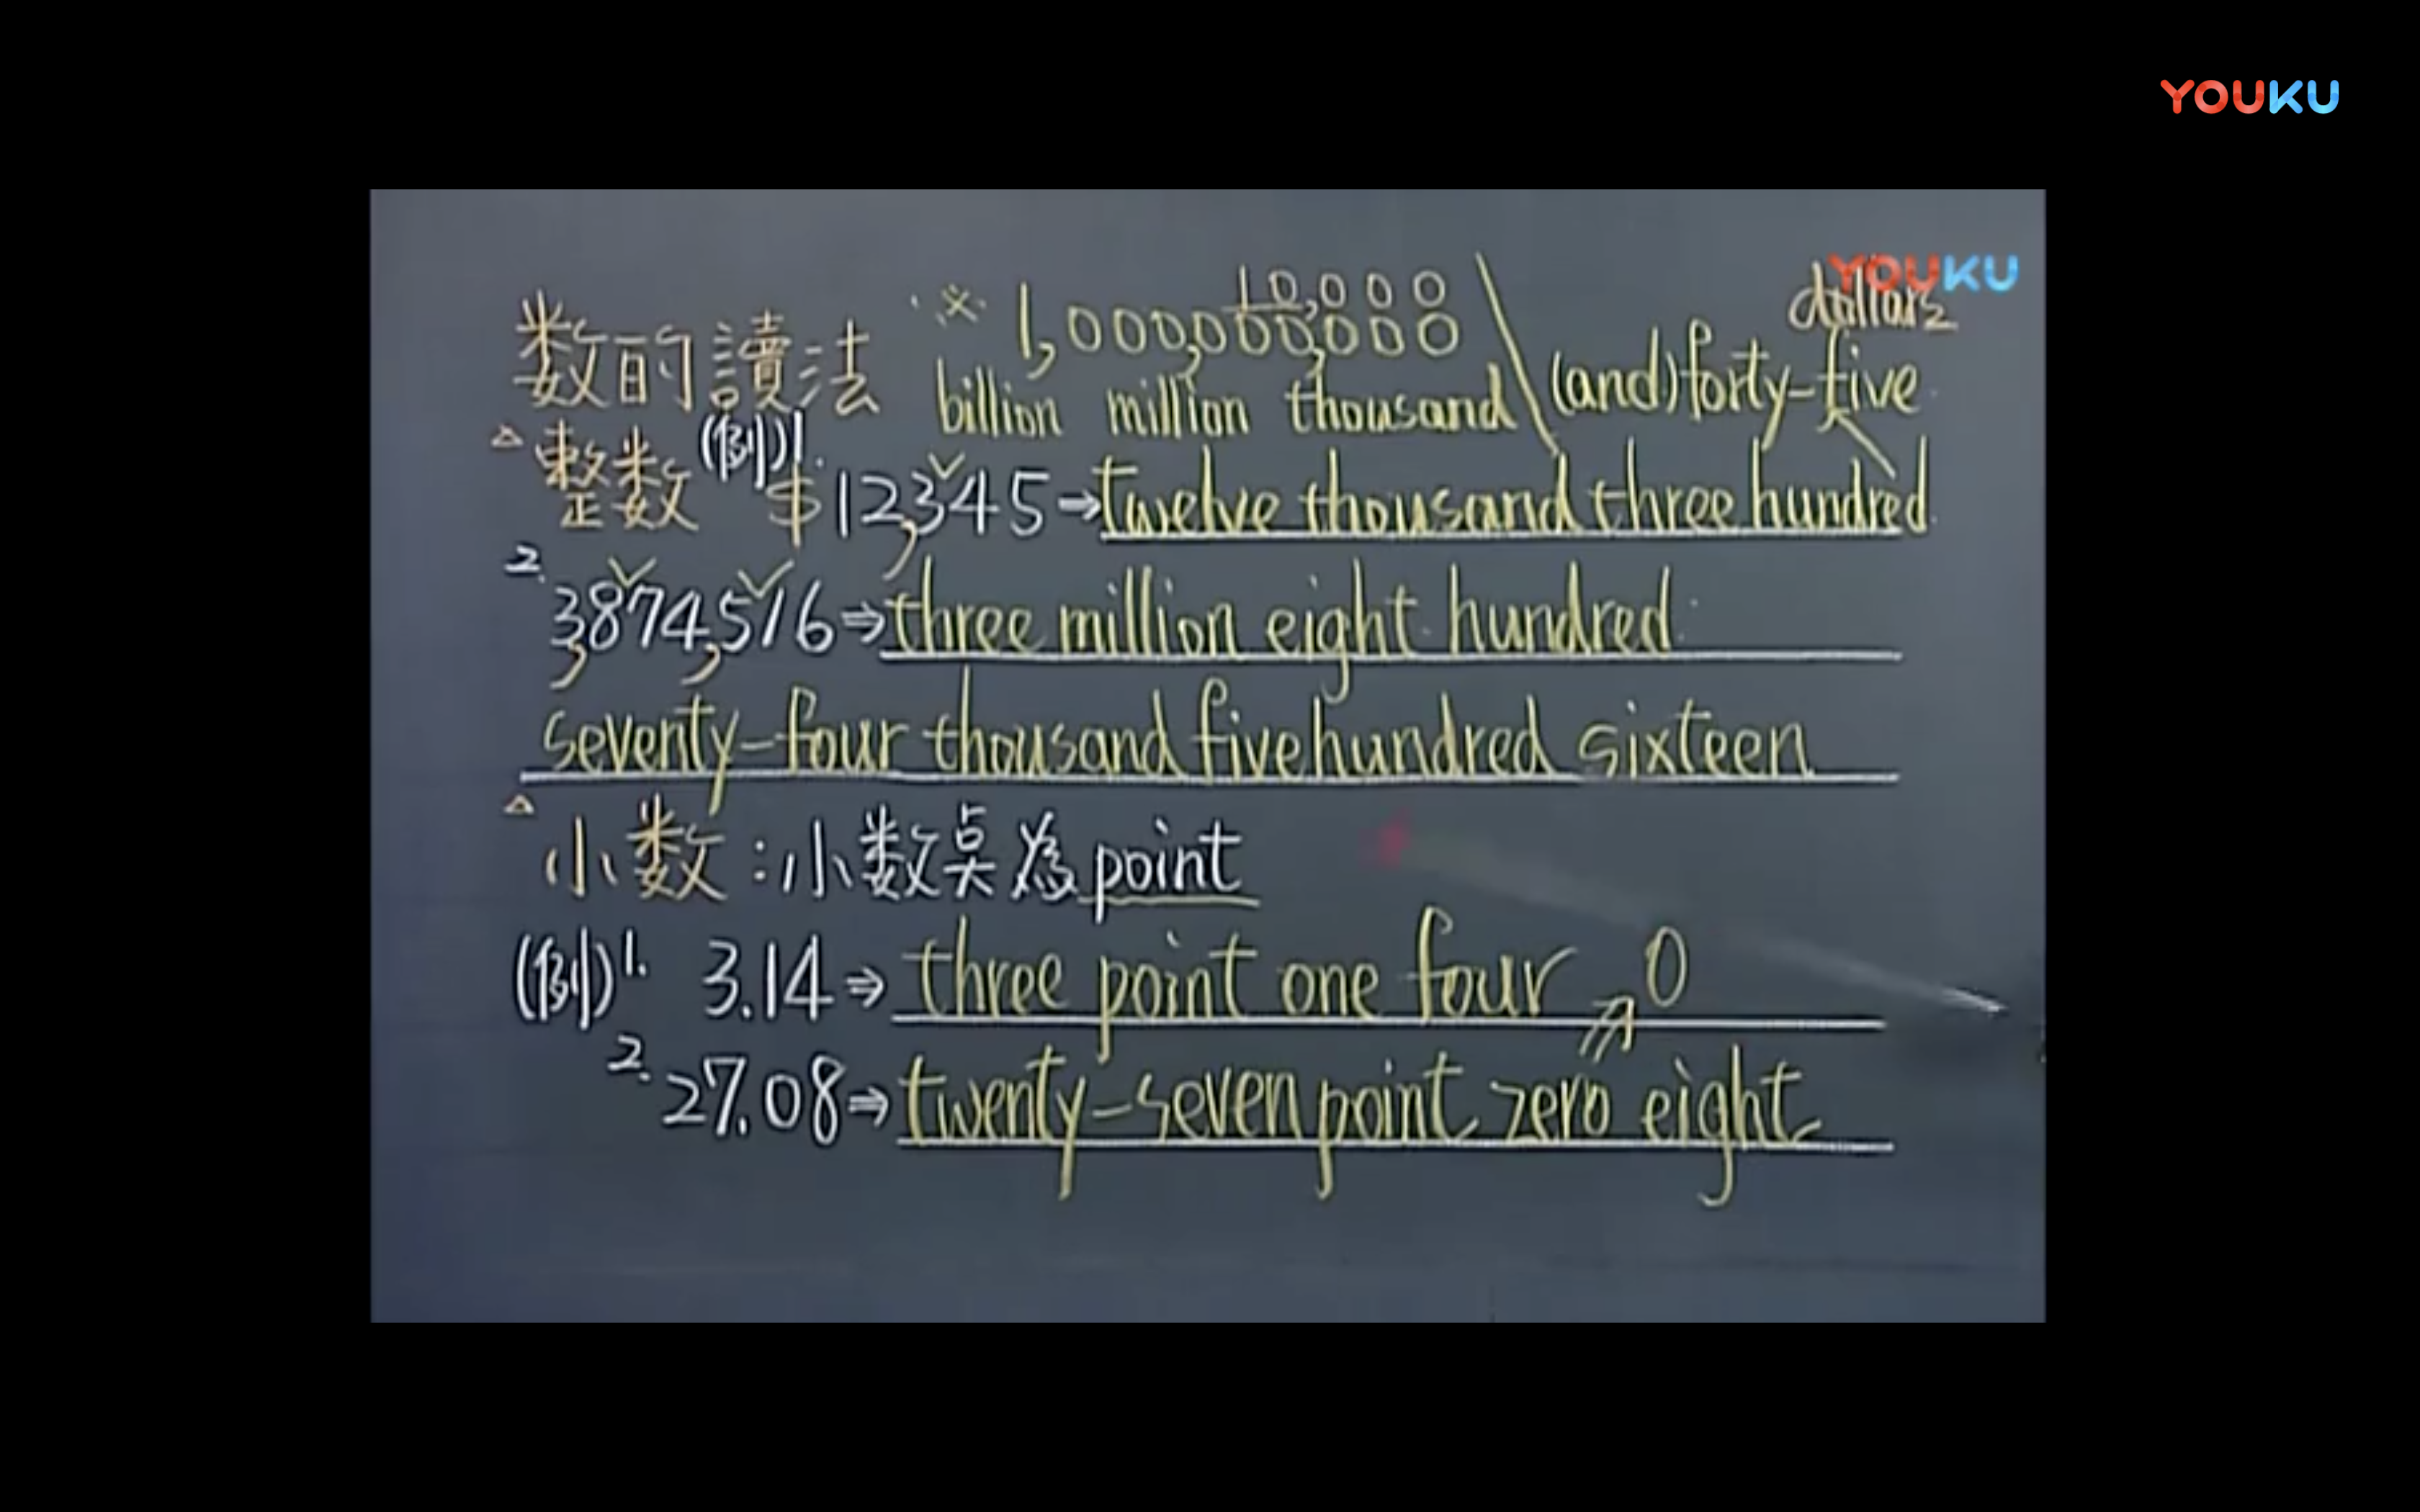 YOUKU
YOUKU
dollars
数的讀法 ※ 1,000,000,000 10,000
billion million thousand (and) forty-five
△整数 (例)1. $12,345⇒twelve thousand three hundred
2. 3,874,516⇒three million eight hundred
seventy-four thousand five hundred sixteen
△小数:小数点為point
(例)1. 3.14⇒three point one four 0
2. 27.08⇒twenty-seven point zero eight